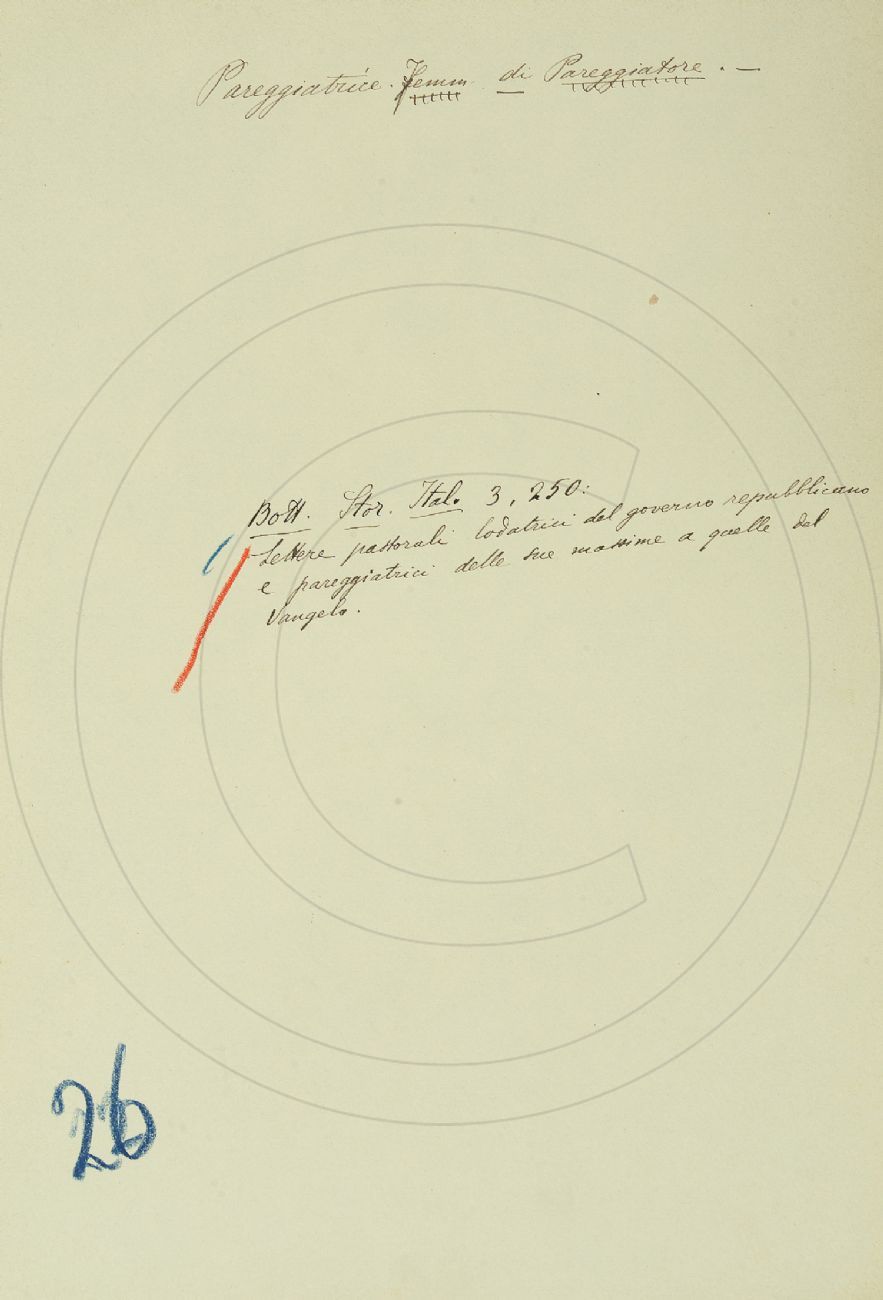 Pareggiatrice. Femm. di Pareggiatore. —
Bott. Stor. Ital. 3, 250:
Lettere pastorali lodatrici del governo repubblicano
e pareggiatrici delle sue massime a quelle del
Vangelo.
26